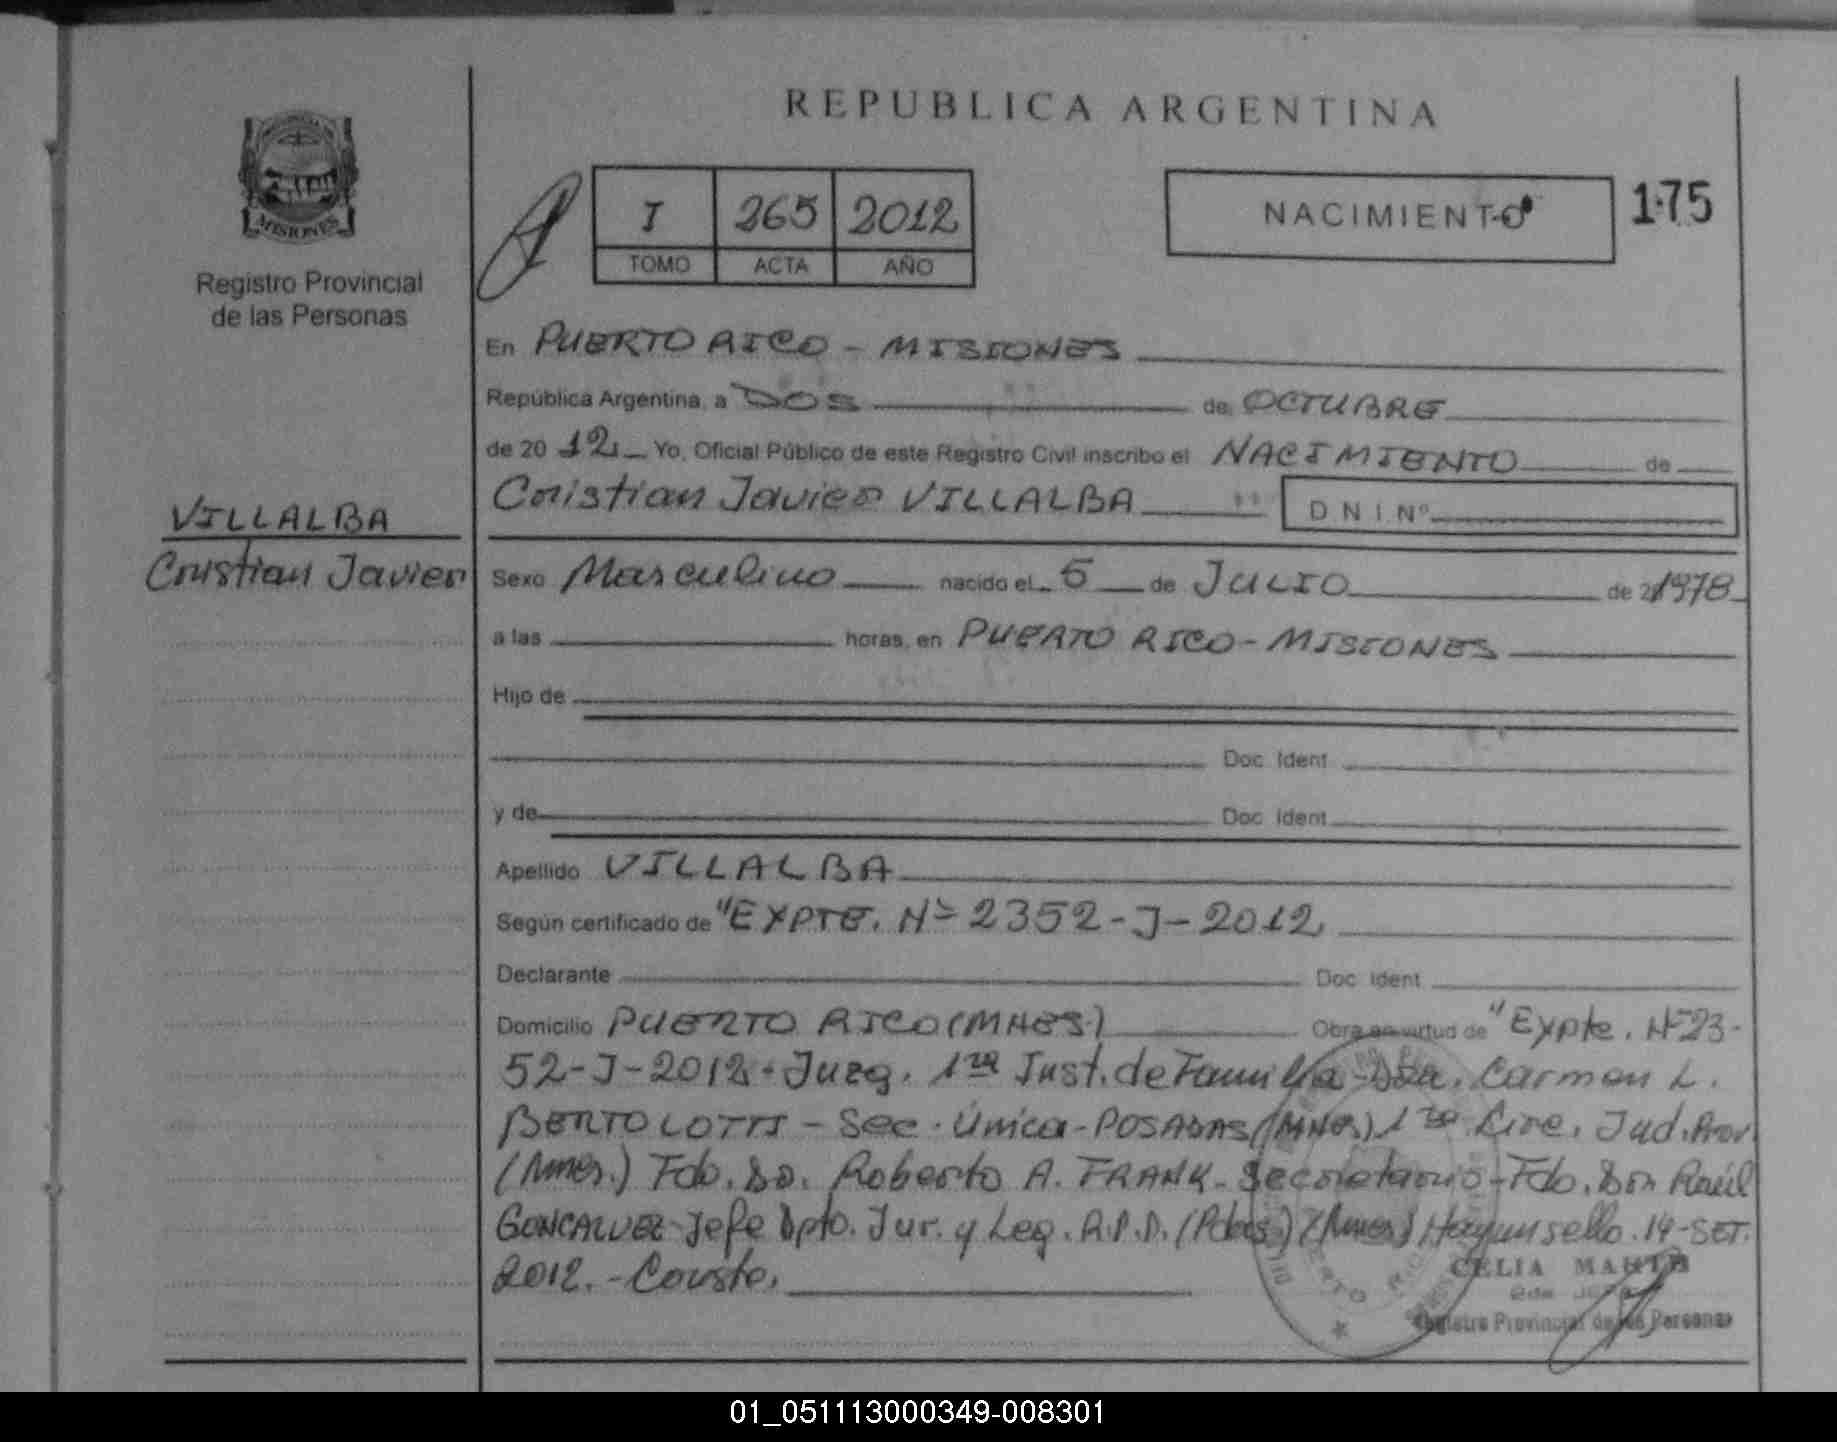 REPUBLICA ARGENTINA
MISIONES
Registro Provincial
de las Personas
I 265 2012
TOMO ACTA AÑO
NACIMIENTO
175
En PUERTO RICO - MISIONES
República Argentina, a DOS de OCTUBRE
de 2012 Yo, Oficial Público de este Registro Civil inscribo el NACIMIENTO de
Cristian Javier VILLALBA D N I Nº
VILLALBA
Cristian Javier
Sexo Masculino nacido el 5 de JULIO de 1978
a las horas, en PUERTO RICO - MISIONES
Hijo de
Doc. Ident
y de Doc. Ident
Apellido VILLALBA
Según certificado de "EXPTE. Nº 2352-J-2012
Declarante Doc. Ident
Domicilio PUERTO RICO (MNES.) Obra en virtud de "Expte. Nº 23-
52-J-2012. Juzg. 1ra Inst. de Familia - Dra. Carmen L.
BERTOLOTTI - Sec. Única - POSADAS (MNES) 1ra Circ. Jud. Prov.
(Mnes.) Fdo. Dr. Roberto A. FRANK - Secretario - Fdo. Don Raúl
GONCALVEZ - Jefe Dpto. Jur. y Leg. R.P.P. (Pdas.) (Mnes) Hay un sello. 14-SET.
2012. - Conste.
CELIA
Registro Provincial de las Personas
01_051113000349-008301